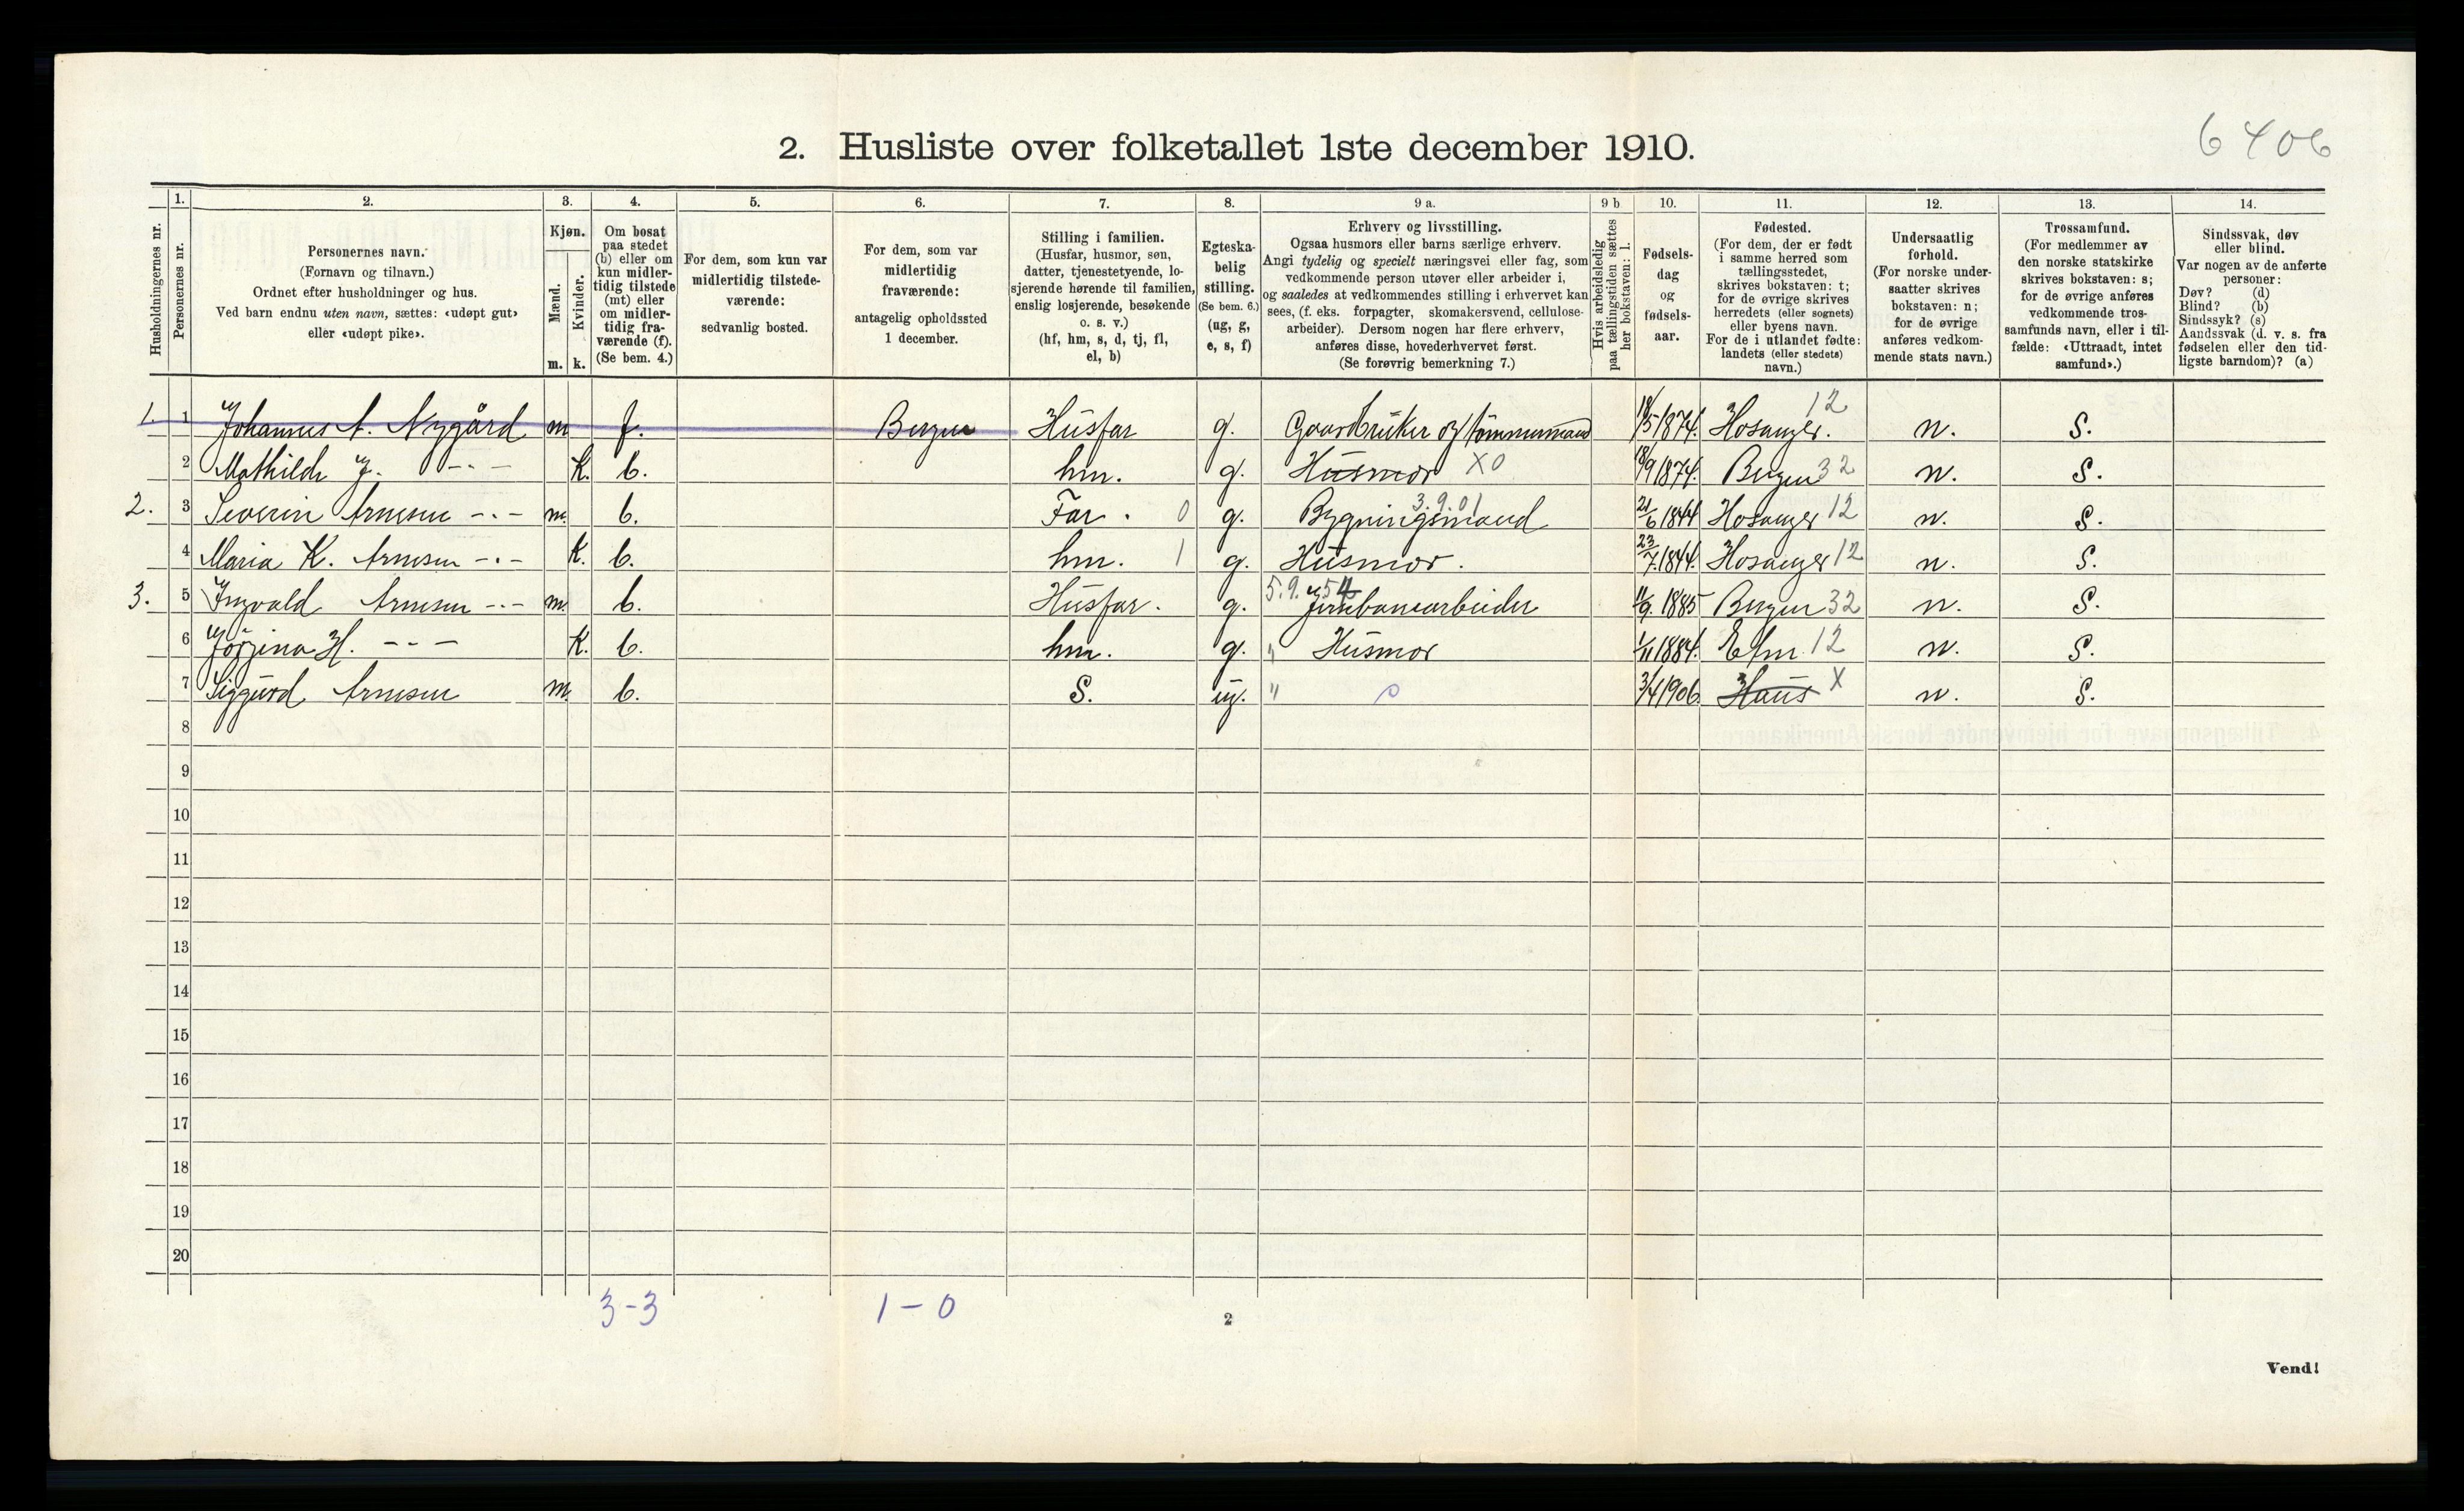 6406
2. Husliste over folketallet 1ste december 1910.
Husholdningernes nr.
1.
Personernes nr.
2.
Personernes navn.
(Fornavn og tilnavn.)
Ordnet efter husholdninger og hus.
Ved barn endnu uten navn, sættes: «udøpt gut»
eller «udøpt pike».
3.
Kjøn.
Mænd.
Kvinder.
m. k.
4.
Om bosat
paa stedet
(b) eller om
kun midler-
tidig tilstede
(mt) eller
om midler-
tidig fra-
værende (f).
(Se bem. 4.)
5.
For dem, som kun var
midlertidig tilstede-
værende:
sedvanlig bosted.
6.
For dem, som var
midlertidig
fraværende:
antagelig opholdssted
1 december.
7.
Stilling i familien.
(Husfar, husmor, søn,
datter, tjenestetyende, lo-
sjerende hørende til familien,
enslig losjerende, besøkende
o. s. v.)
(hf, hm, s, d, tj, fl,
el, b)
8.
Egteska-
belig
stilling.
(Se bem. 6.)
(ug, g,
e, s, f)
9 a.
Erhverv og livsstilling.
Ogsaa husmors eller barns særlige erhverv.
Angi tydelig og specielt næringsvei eller fag, som
vedkommende person utøver eller arbeider i,
og saaledes at vedkommendes stilling i erhvervet kan
sees, (f. eks. forpagter, skomakersvend, cellulose-
arbeider). Dersom nogen har flere erhverv,
anføres disse, hovederhvervet først.
(Se forøvrig bemerkning 7.)
9 b
Hvis arbeidsledig
paa tællingstiden sættes
her bokstaven: l.
10.
Fødsels-
dag
og
fødsels-
aar.
11.
Fødested.
(For dem, der er født
i samme herred som
tællingsstedet,
skrives bokstaven: t;
for de øvrige skrives
herredets (eller sognets)
eller byens navn.
For de i utlandet fødte:
landets (eller stedets)
navn.)
12.
Undersaatlig
forhold.
(For norske under-
saatter skrives
bokstaven: n;
for de øvrige
anføres vedkom-
mende stats navn.)
13.
Trossamfund.
(For medlemmer av
den norske statskirke
skrives bokstaven: s;
for de øvrige anføres
vedkommende tros-
samfunds navn, eller i til-
fælde: «Uttraadt, intet
samfund».)
14.
Sindssvak, døv
eller blind.
Var nogen av de anførte
personer:
Døv? (d)
Blind? (b)
Sindssyk? (s)
Aandssvak (d. v. s. fra
fødselen eller den tid-
ligste barndom)? (a)
1. 1 Johannes A. Nygård m f. Bergen Husfar g. Gaardbruker og tømmermand 18/5 1874. Hosanger. 12 n. S.
2 Mathilde J. -..- K. b. hm. g. Husmor XO 18/9 1874. Bergen 32 n. S.
2. 3 Severin Arnesen -..- m. b. Far. 0 g. Bygningsmand 3.9.01 21/6 1844 Hosanger 12 n. S.
4 Maria K. Arnesen -..- K. b. hm. 1 g. Husmor. 23/7 1844. Hosanger 12 n. S.
3. 5 Ingvald Arnesen -..- m. b. Husfar. g. 5.9.54 Jernbanearbeider 11/9. 1885 Bergen 32 n. S.
6 Jörgina H. -..- K. b. hm. g. " Husmor 1/11 1884. 12 n. S.
7 Siggurd Arnesen m. b. S. ug. " 3/4 1906. Haus X n. S.
8
9
10
11
12
13
14
15
16
17
18
19
20
3-3 1-0
2
Vend!